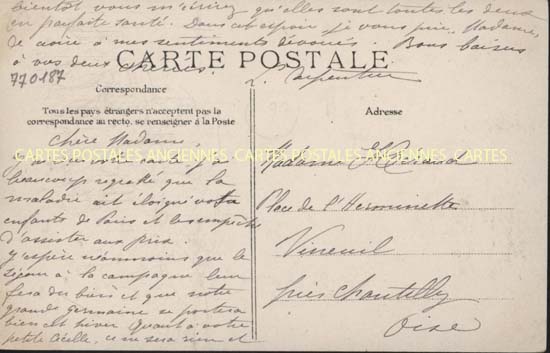 bientôt vous m'écrirez qu'elles sont toutes les deux
en parfaite santé. Dans cet espoir je vous prie, Madame,
de croire à mes sentiments dévoués. Bons baisers
à vos deux chéries.
CARTE POSTALE
770187
L. Carpentier
Correspondance
Tous les pays étrangers n'acceptent pas la
correspondance au recto, se renseigner à la Poste
Adresse
Chère Madame
CARTES POSTALES ANCIENNES CARTES POSTALES ANCIENNES, CARTES
beaucoup regretté que la
maladie ait éloigné vos
enfants de Paris et les empêche
d'assister aux prix.
J'espère néanmoins que le
séjour à la campagne leur
fera du bien et que notre
grande Germaine se portera
bien cet hiver. Quant à votre
petite Cécile, ce ne sera rien et
Madame
Place de l'Hermunette
Vineuil
près Chantilly
Oise